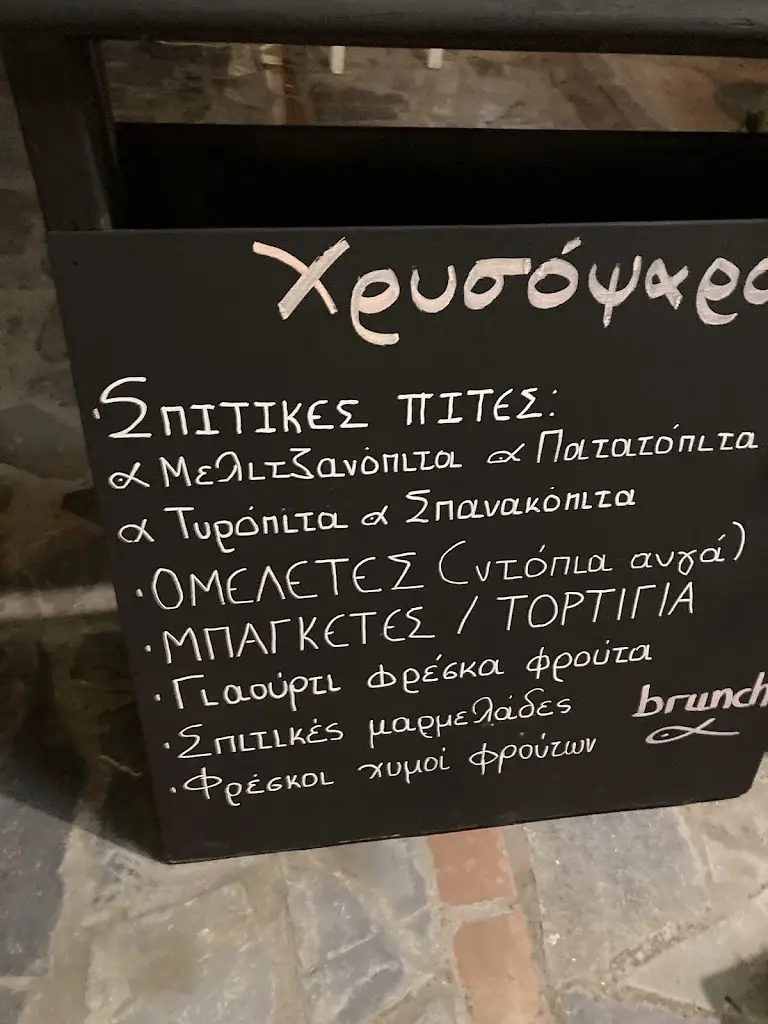 Χρυσόψαρο
·ΣΠΙΤΙΚΕΣ ΠΙΤΕΣ:
Μελιτζανόπιτα Πατατόπιτα
Τυρόπιτα Σπανακόπιτα
·ΟΜΕΛΕΤΕΣ (ντόπια αυγά)
·ΜΠΑΓΚΕΤΕΣ / ΤΟΡΤΙΓΙΑ
·Γιαούρτι Φρέσκα φρούτα
·Σπιτικές μαρμελάδες
brunch
·Φρέσκοι χυμοί φρούτων